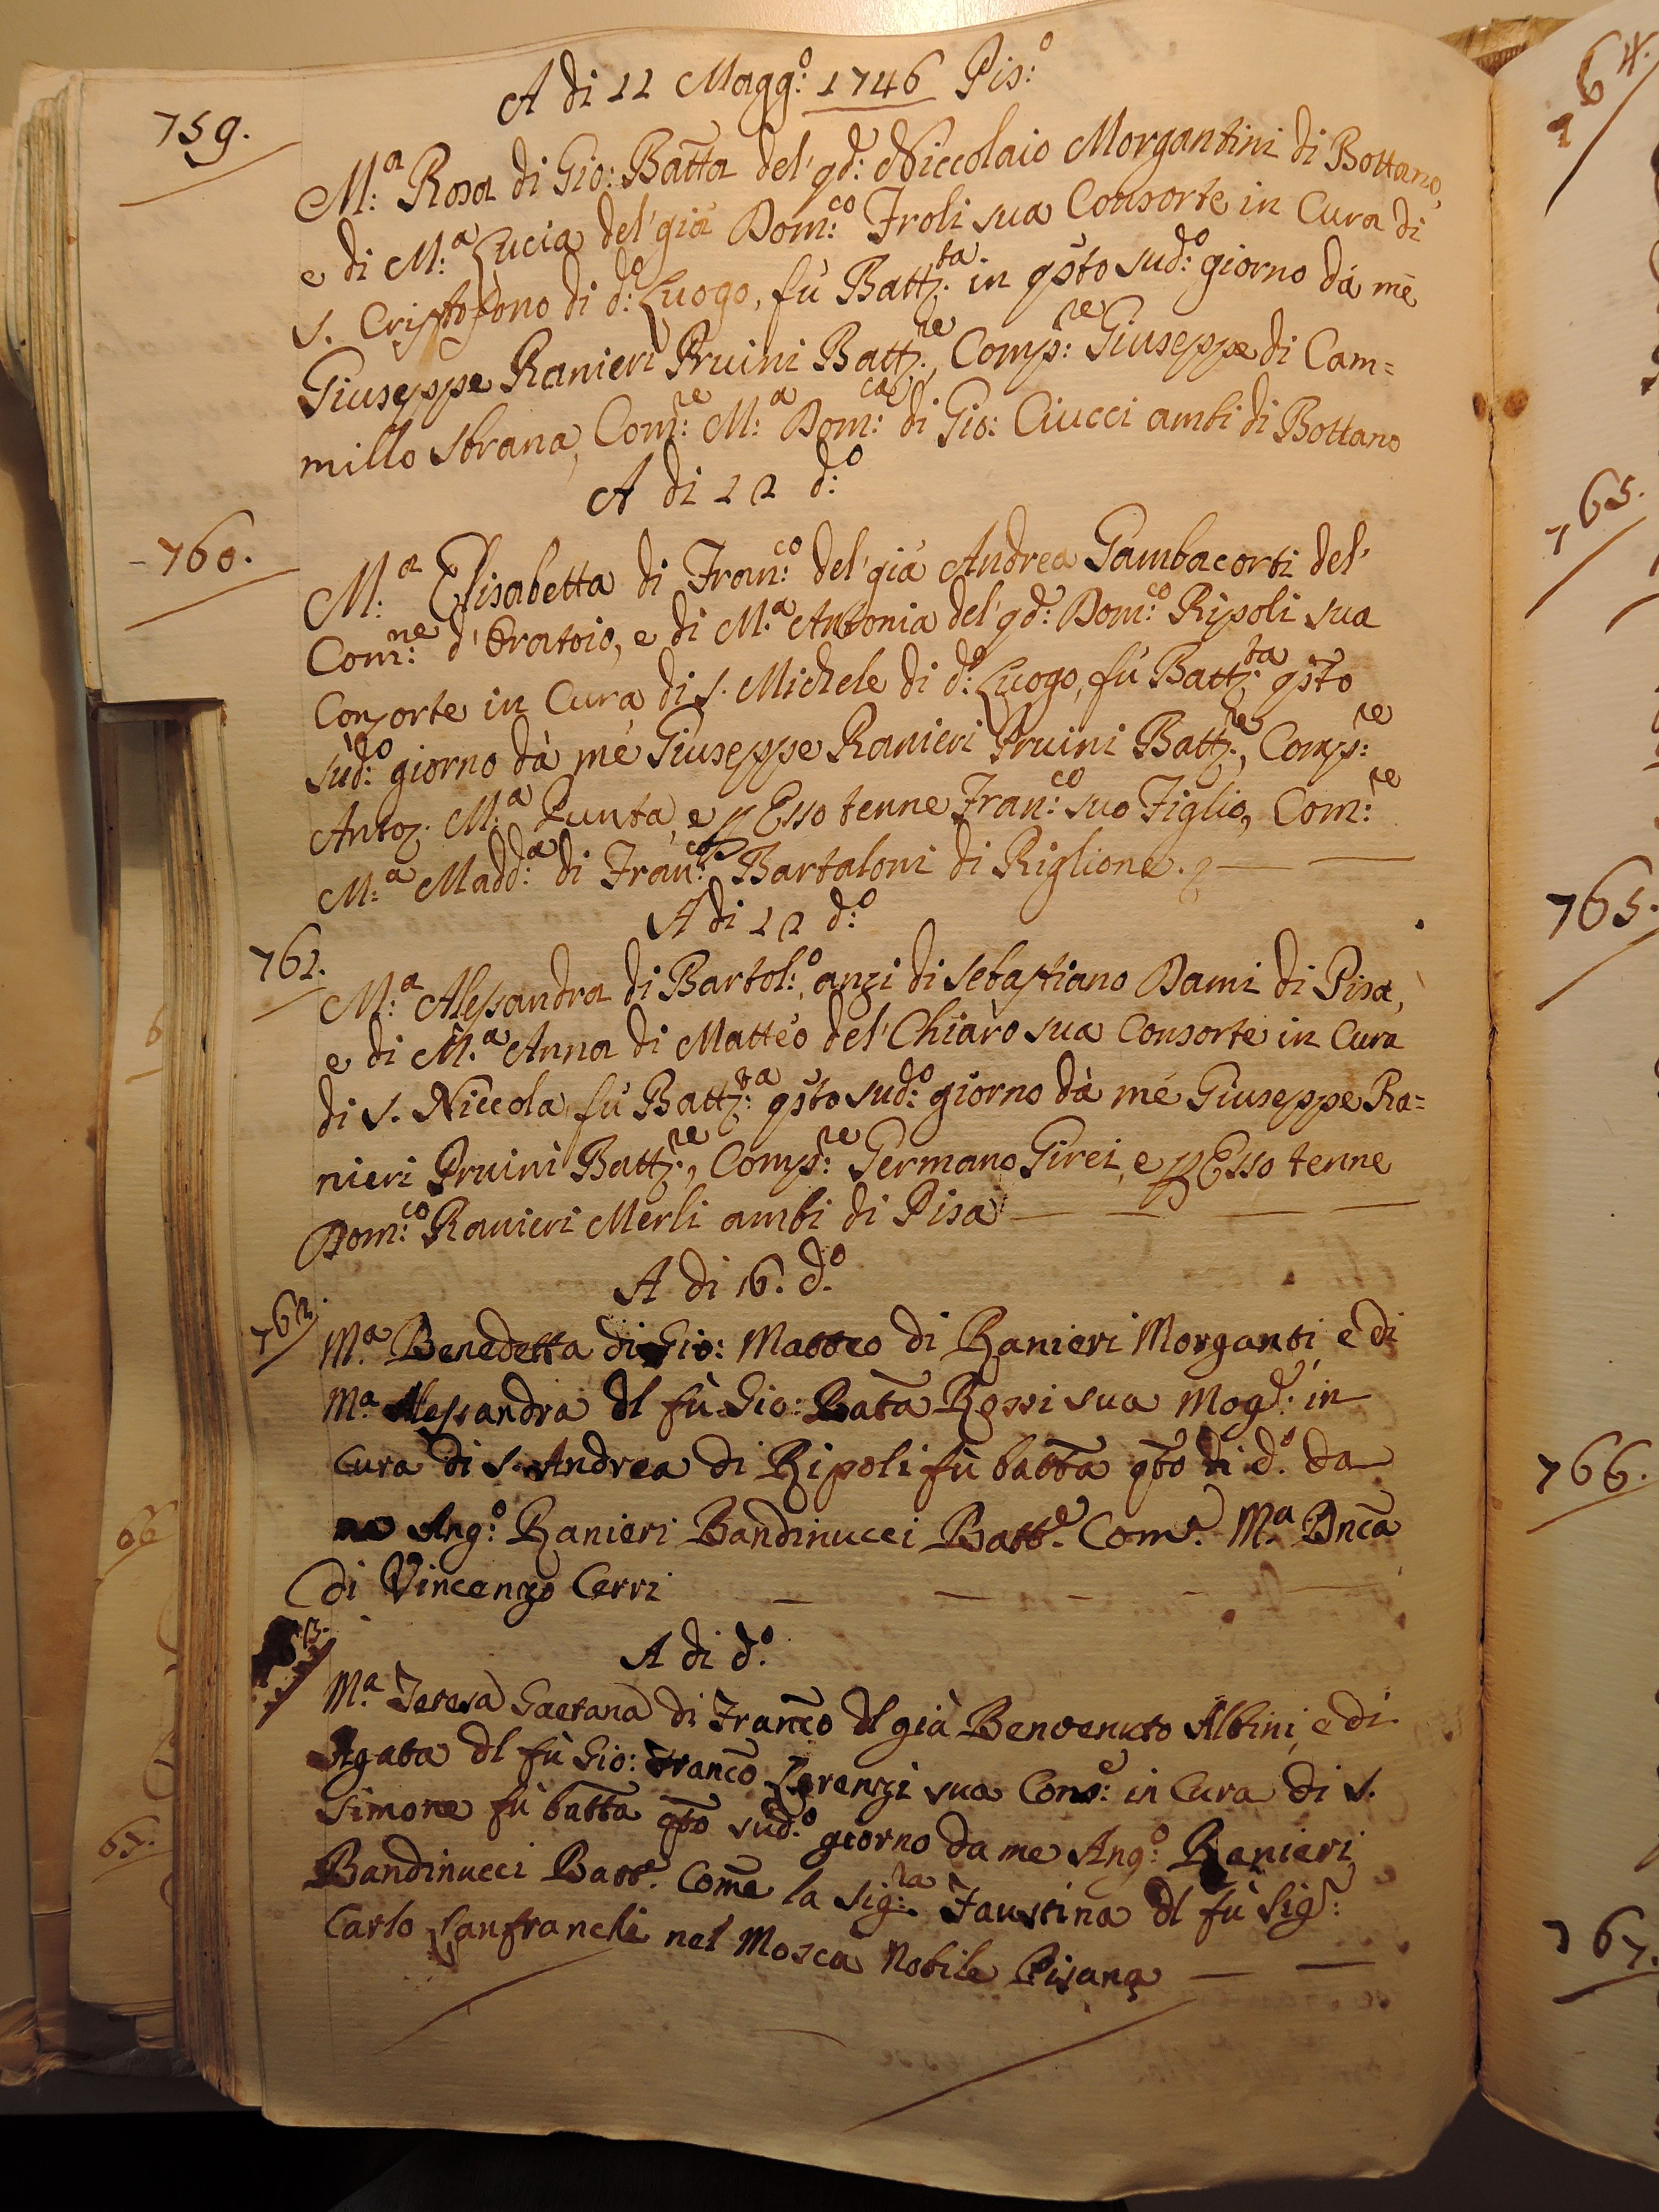 A di 11 Magg:º 1746 Pis:º
759.
M:ª Rosa di Gio: Batta del' qd: Niccolaio Morgantini di Bottano,
e di M:ª Lucia del' già Dom:co Froli sua Consorte in Cura di
S. Cristofano di d:º Luogo, fù Battz:ta in qsto sud:º giorno dà mè
Giuseppe Ranieri Pruini Battz:re, Comp:re Giuseppe di Cam=
millo Strana, Com:re M:ª Dom:ca di Gio: Ciucci ambi di Bottano
A di 12 d:º
760.
M:ª Elisabetta di Fran:co del' già Andrea Gambacorti del'
Com:ne d'Oratoio, e di M:ª Antonia del' qd: Dom:co Ripoli sua
Consorte in Cura di S. Michele di d:º Luogo, fù Battz:ta qsto
sud:º giorno dà mè Giuseppe Ranieri Pruini Battz:re, Comp:re
Antoz. M:ª Punta, e p Esso tenne Fran:co suo Figlio, Com:re
M:ª Madd:ª di Fran:co Bartaloni di Riglione.
A di 12 d:º
761.
M:ª Alessandra di Bartol:º, anzi di Sebastiano Dami di Pisa,
e di M:ª Anna di Matteo del' Chiaro sua Consorte in Cura
di S. Niccola, fù Battz:ta qsto sud:º giorno dà mè Giuseppe Ra=
nieri Pruini Battz:re, Comp:re Germano Girei, e p Esso tenne
Dom:co Ranieri Merli ambi di Pisa
A di 16. d:º
762.
M:ª Benedetta di Gio: Matteo di Ranieri Morganti e di
M:ª Alessandra dl fù Gio: Batta Rossi sua Mog:e in
Cura di S. Andrea di Ripoli fù batta qto di d:º da
me Ang:º Ranieri Bandinucci Batt:e Com:e M:ª Dnca
di Vincenzo Cerri
A di d:º
M:ª Teresa Gaetana di Franco dl già Benvenuto Albini, e di
Agata dl fù Gio: Franco Lorenzi sua Cons:e in Cura di S.
Simone fù batta qto sud:º giorno da me Ang:º Ranieri
Bandinucci Batt:e Come la Sig:ra Faustina dl fù Sig:
Carlo Lanfranchi nel Mosca Nobile Pisana
764.
765.
765.
766.
767.